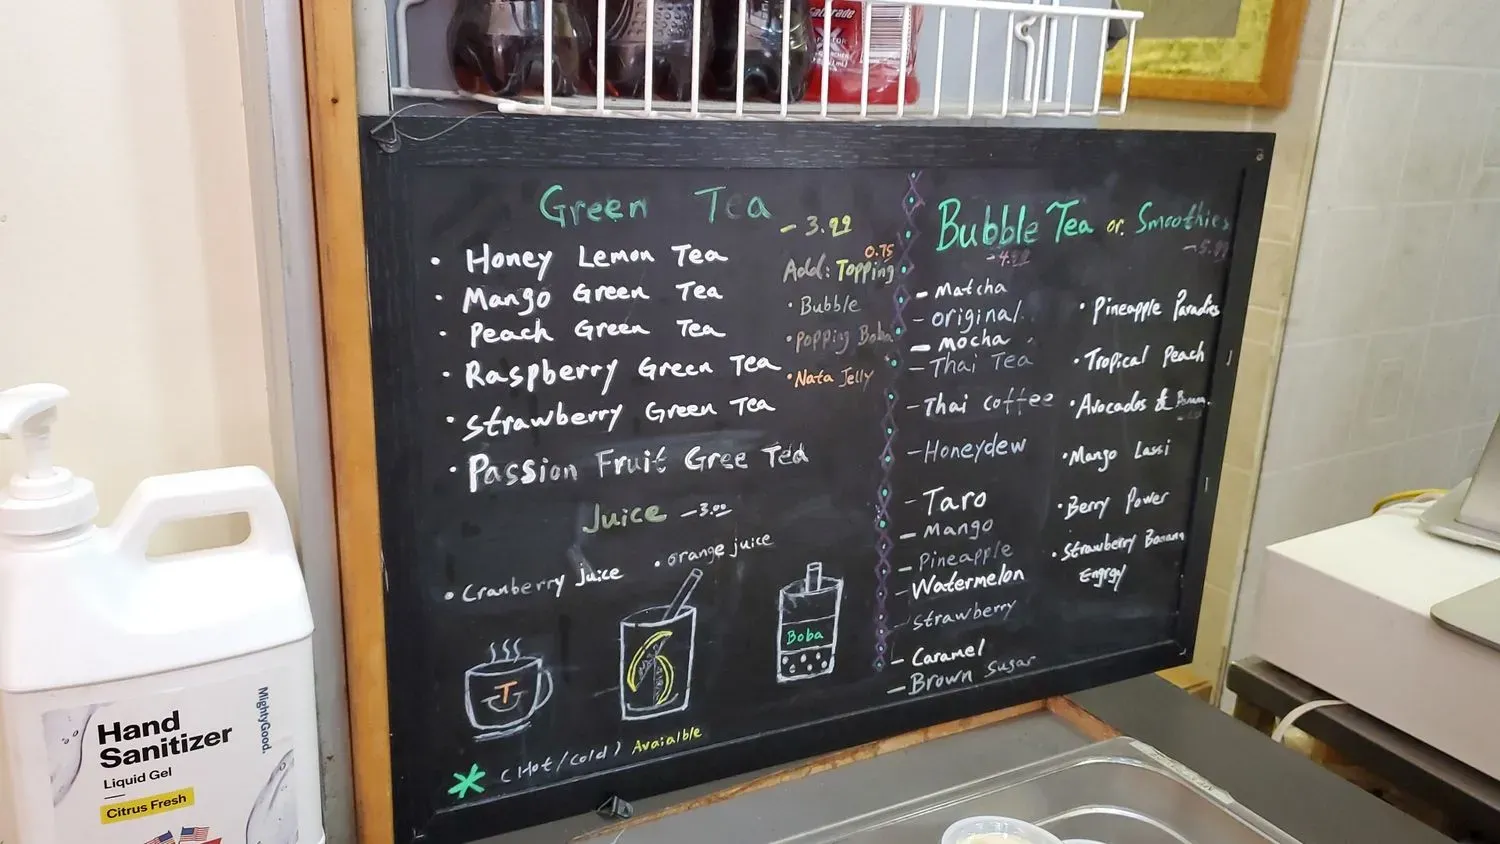 Gatorade
Green Tea
- 3.99
• Honey Lemon Tea
• Mango Green Tea
• Peach Green Tea
• Raspberry Green Tea
• Strawberry Green Tea
• Passion Fruit Gree Tea
0.75
Add: Topping
• Bubble
• Popping Boba
• Nata Jelly
Juice - 3.00
• Cranberry juice
• orange juice
T
Boba
* (Hot/cold) Avaialble
Bubble Tea or. Smoothies
- 4.99
- 5.99
- Matcha
- original
- Mocha
- Thai Tea
- Thai coffee
- Honeydew
- Taro
- Mango
- Pineapple
- Watermelon
- Strawberry
- Caramel
- Brown Sugar
• Pineapple Paradies
• Tropical Peach
• Avocados &
• Mango Lassi
• Berry Power
• Strawberry Banana
Engrgy
Hand
Sanitizer
Liquid Gel
Citrus Fresh
MightyGood.